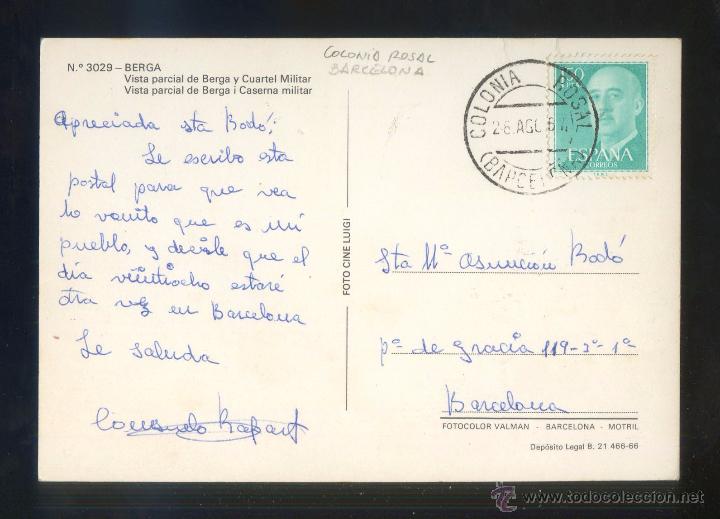 Nº 3029 – BERGA
Vista parcial de Berga y Cuartel Militar
Vista parcial de Berga i Caserna militar
COLONIA ROSAL
BARCELONA
COLONIA ROSAL
28 AGO
(BARCELONA)
ESPAÑA
CORREOS
Apreciada sta Bodó;
Le escribo esta
postal para que vea
lo vonito que es mi
pueblo, y decirle que el
día vintiocho estaré
otra vez en Barcelona
Le saluda
Consuelo
FOTO CINE LUIGI
Sta Mª Asunción Bodó
pº de gracia 119-3º-1ª
Barcelona
FOTOCOLOR VALMAN - BARCELONA - MOTRIL
Depósito Legal B. 21 466-66
© www.todocoleccion.net